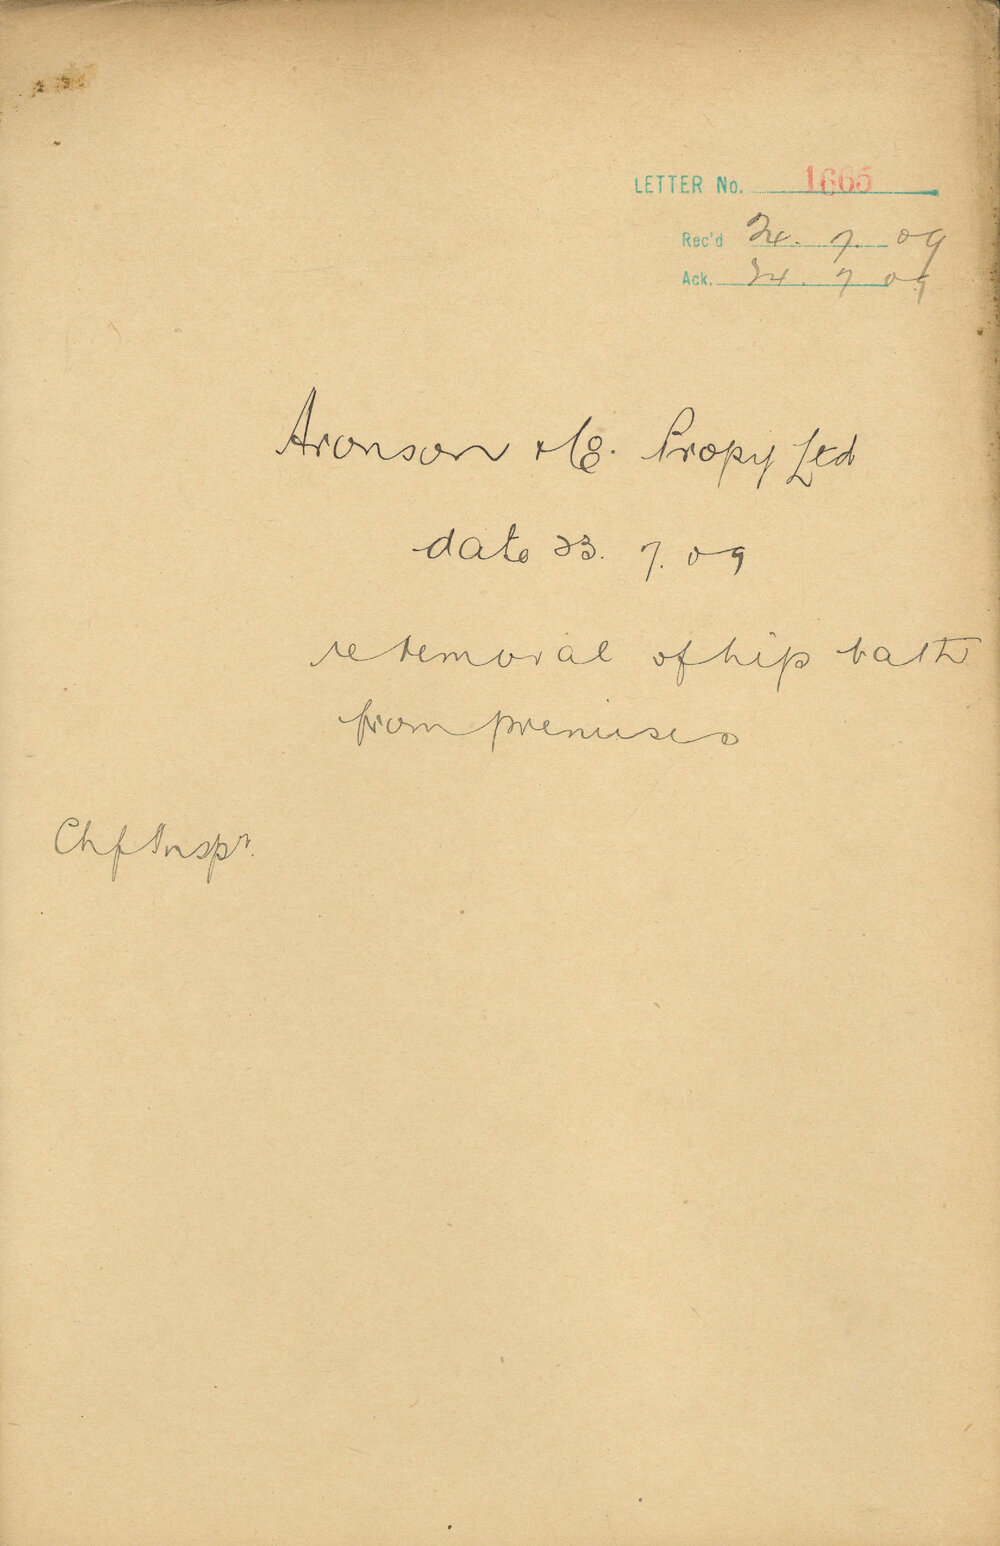 LETTER No. 1665
Rec'd 24. 7. 09
Ack. 24. 7 09
Aronson & Co. Propy Ltd
date 23. 7. 09
re removal of hip bath
from premises
Chf Inspr.